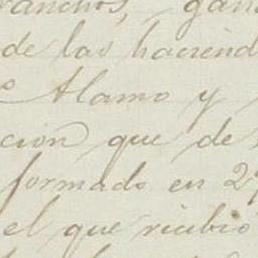 ranchos, gana
de las haciend
o Alamo y
cion que de
formado en 27
el que recibió